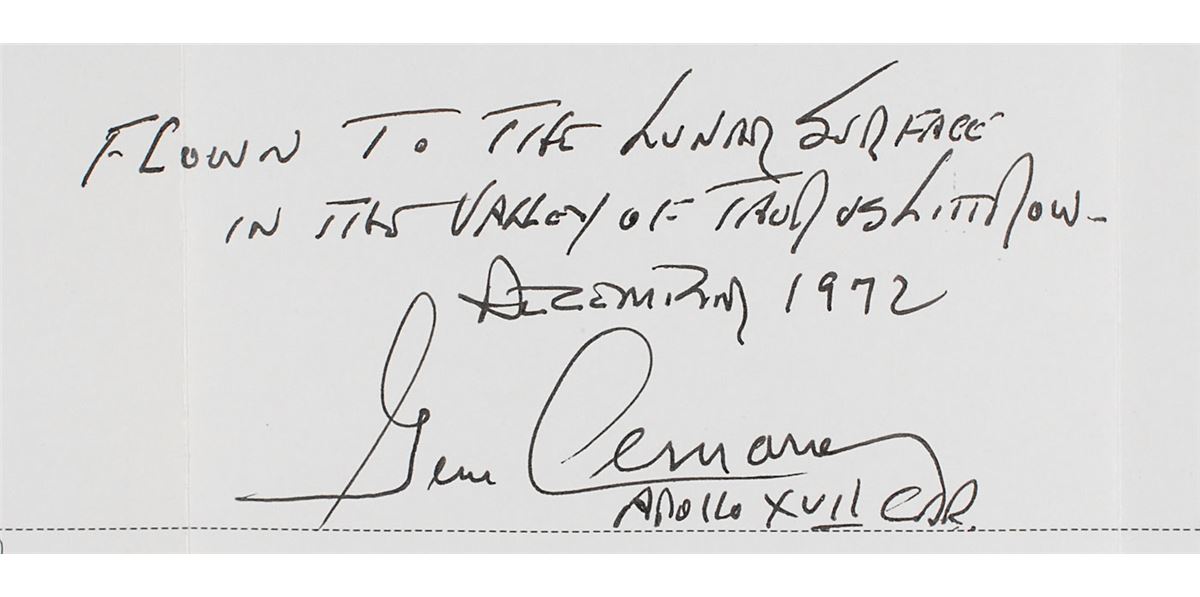 FLOWN TO THE LUNAR SURFACE
IN THE VALLEY OF TAURUS LITTROW-
DECEMBER 1972
Gene Cernan
APOLLO XVII CDR.